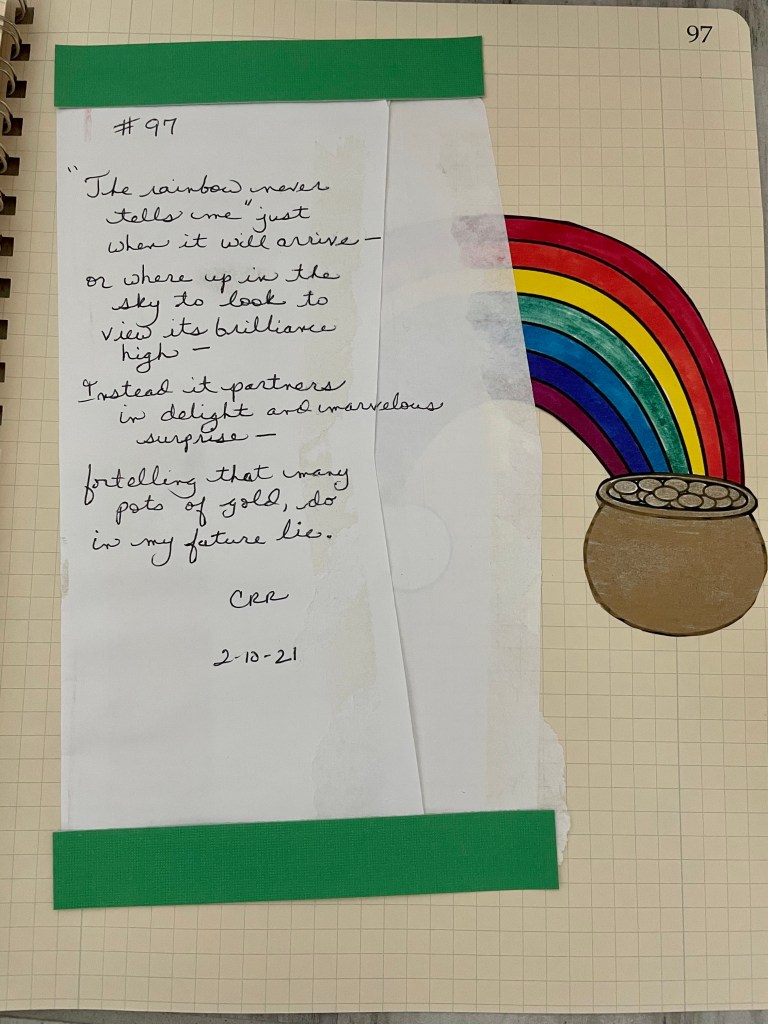 97
# 97
"The rainbow never
tells me" just
when it will arrive —
or where up in the
sky to look to
view its brilliance
high —
Instead it partners
in delight and marvelous
surprise —
fortelling that many
pots of gold, do
in my future lie.
CRR
2-10-21